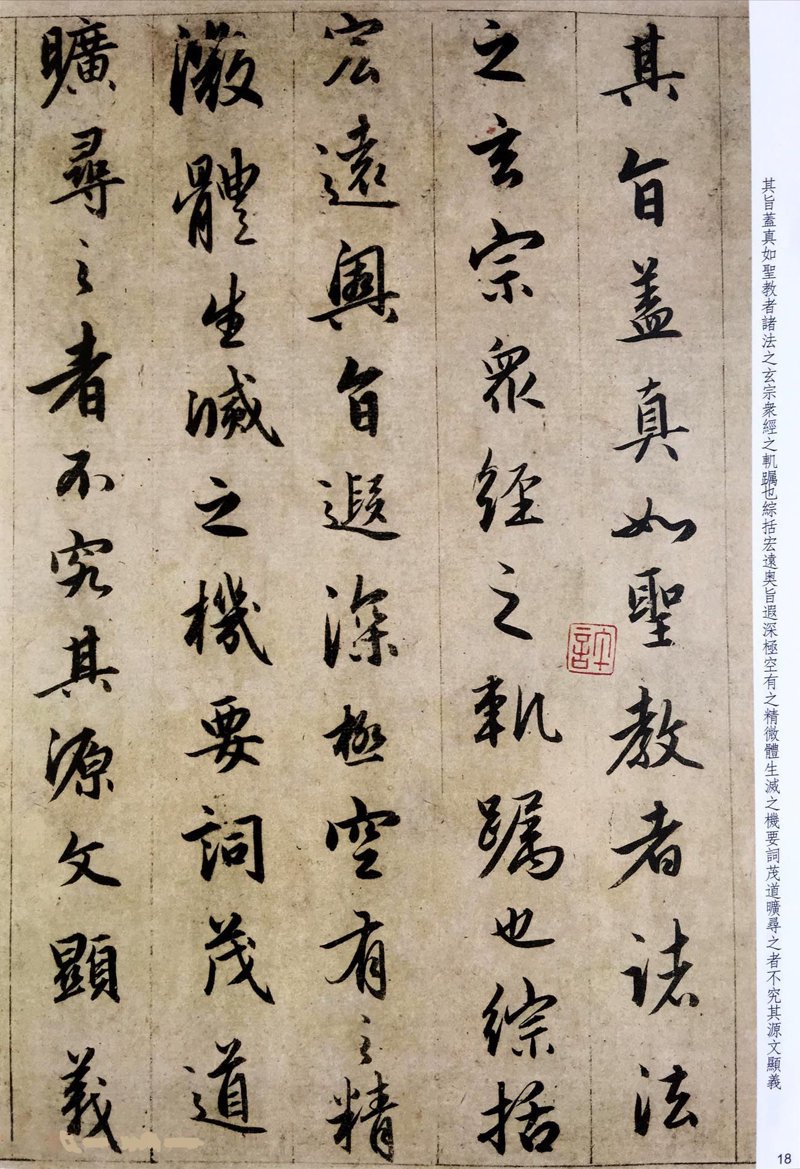 其旨蓋真如聖教者諸法
之玄宗衆經之軌躅也綜括
宏遠奧旨遐深極空有之精
微體生滅之機要詞茂道
曠尋之者不究其源文顯義
其旨蓋真如聖教者諸法之玄宗衆經之軌躅也綜括宏遠奥旨遐深極空有之精微體生滅之機要詞茂道曠尋之者不究其源文顯義
18